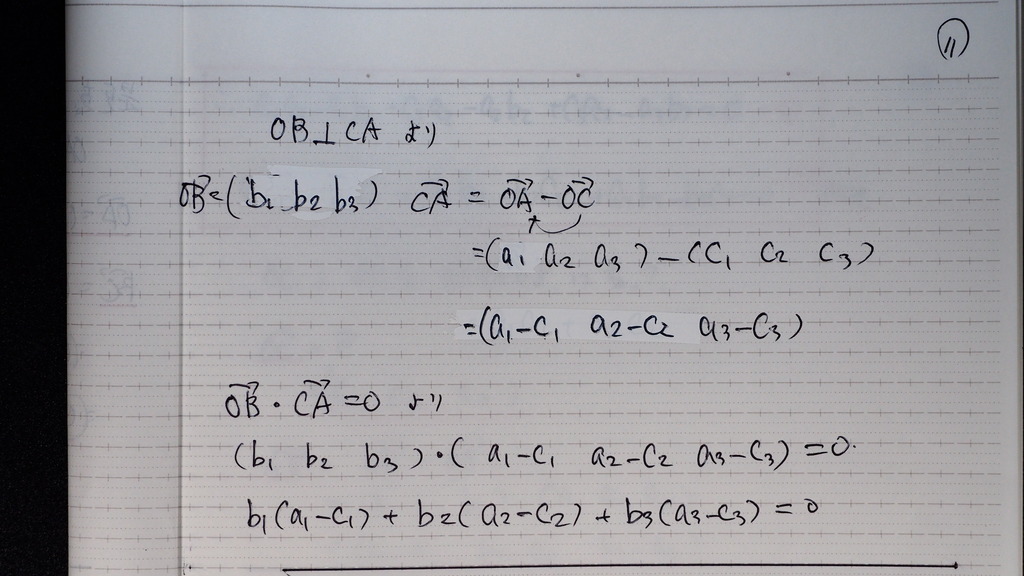 ⑪
OB⊥CA より
→OB=(b₁ b₂ b₃) →CA = →OA−→OC
=(a₁ a₂ a₃)−(c₁ c₂ c₃)
=(a₁−c₁ a₂−c₂ a₃−c₃)
→OB・→CA=0 より
(b₁ b₂ b₃)・(a₁−c₁ a₂−c₂ a₃−c₃)=0.
b₁(a₁−c₁)+b₂(a₂−c₂)+b₃(a₃−c₃)=0